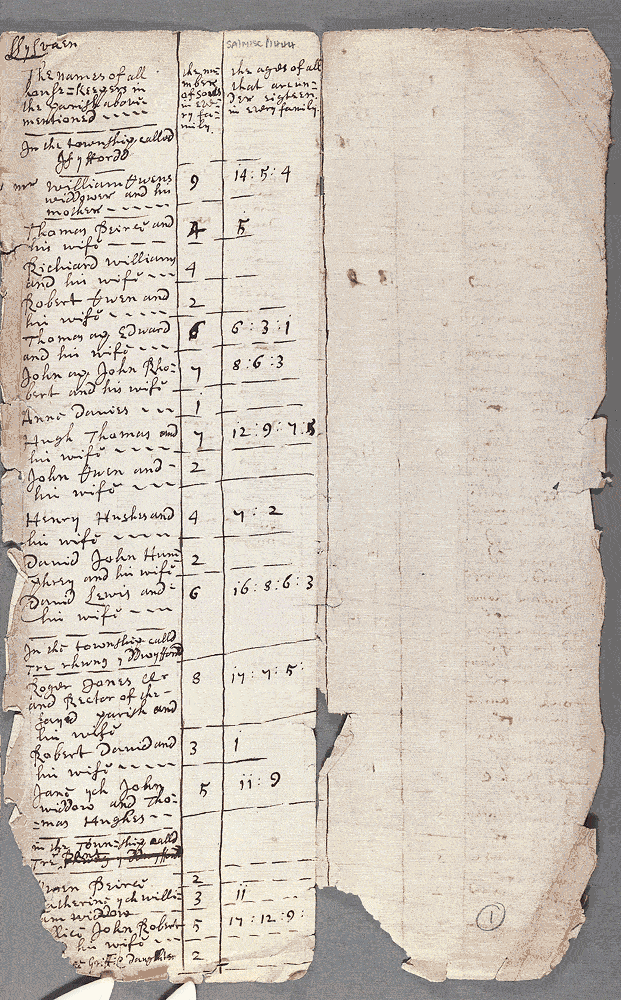 SA/MISC/1444
Llysvaen
The names of all
house-keepers in
the parish above
mentioned -----
the nu=
mber
of Souls
in eve=
ry fa=
mily.
the ages of all
that are un=
der eighteen
in every family.
In the township called
Isyffordd
mr William Owens 9 14:5:4
widdower and his
mother -----
Thomas Peirce and 4 5
his wife -----
Richard William 4
and his wife ---
Robert Owen and 2
his wife -----
Thomas ap Edward 6 6:3:1
and his wife ---
John ap John Rho= 7 8:6:3
bert and his wife
Anne Davies --- 1
Hugh Thomas and 7 12:9:7:5
his wife -----
John Owen and- 2
his wife ----
Henry Hughes and 4 7:2
his wife ----
David John Hum 2
phrey and his wife
David Lewis and- 6 16:8:6:3
his wife ---
In the township calld
Tre rhwng y ddwyffordd
Roger Jones Cler 8 17:7:5:
and Rector of the-
sayd parish and
his wife
Robert David and 3 1
his wife -----
Jane ych John 5 11:9
widdow and Tho=
=mas Hughes --
in the Township calld
Tre
Peirce 2
atherine ych willi= 3 11
am widdow
Rice John Robert 5 17:12:9:
his wife ---
Daughter 2
1